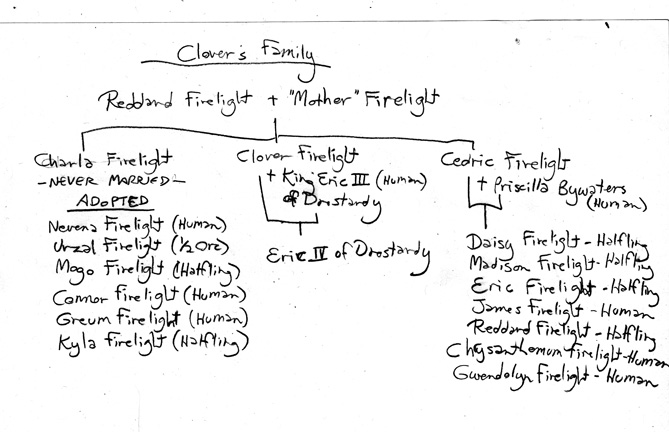 Clover's Family
Reddard Firelight + "Mother" Firelight
Charla Firelight
-NEVER MARRIED-
ADOPTED
Nevena Firelight (Human)
Urzal Firelight (½ Orc)
Mogo Firelight (Halfling)
Connor Firelight (Human)
Greum Firelight (Human)
Kyla Firelight (Halfling)
Clover Firelight
+ King Eric III (Human)
of Drostardy
Eric IV of Drostardy
Cedric Firelight
+ Priscilla Bywaters
(Human)
Daisy Firelight - Halfling
Madison Firelight - Halfling
Eric Firelight - Halfling
James Firelight - Human
Reddard Firelight - Halfling
Chrysanthemum Firelight - Human
Gwendolyn Firelight - Human